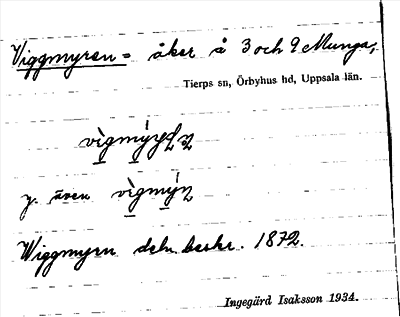 Viggmyren = åker å 3 och 9 Munga,
Tierps sn, Örbyhus hd, Uppsala län.
y. även vìgmýn
Wiggmyrn deln. beskr. 1872.
Ingegärd Isaksson 1934.